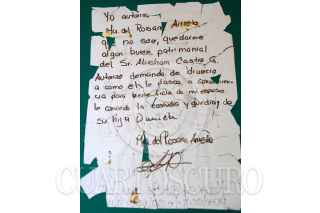 Yo autorizo
Ma. del Rosario Arrieta
que no sea, quedarme
algun buen patrimonial
del Sr. Abraham Castro G.
Autorizo demanda de divorcio
a como el le plasca a
para beneficio de mi esposo
le concedo la custodia y
su hija Daniela
Ma del Rosario Arrieta
CUARTOSCURO